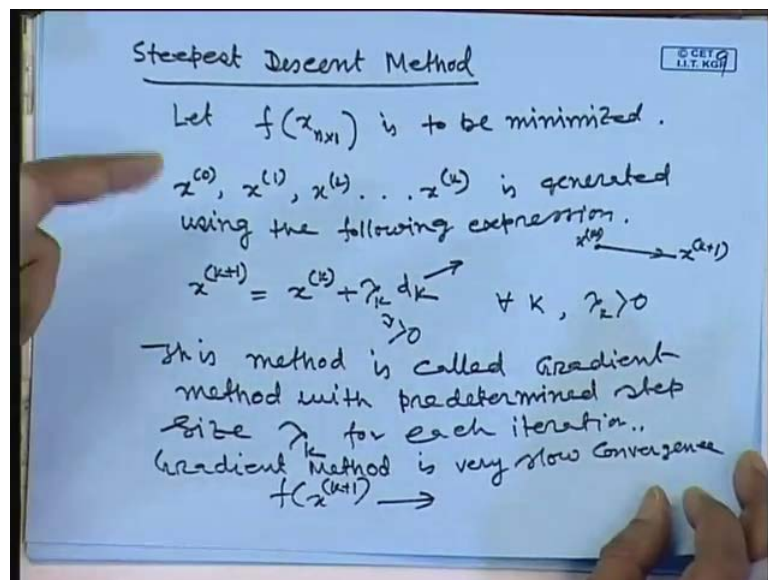 Steepest Descent Method
© CET
I.I.T. KGP
9
Let f(x_{n×1}) is to be minimized.
x^{(0)}, x^{(1)}, x^{(2)} . . . x^{(k)} is generated
using the following expression.
x^{(k)} ⟶ x^{(k+1)}
x^{(k+1)} = x^{(k)} + λ_k d_k ∀ k, λ_k > 0
λ > 0
This method is called Gradient
method with predetermined step
size λ_k for each iteration..
Gradient Method is very slow Convergence
f(x^{(k+1)}) ⟶